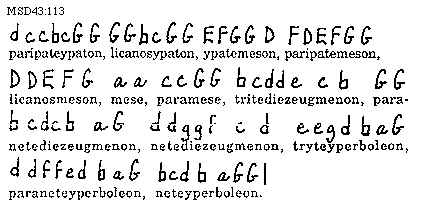 MSD43:113
dccbcGG GGbcGG EFGGD FDEFGG
paripateypaton, licanosypaton, ypatemeson, paripatemeson,
DDEFG aa ccGG bcdde cb GG
licanosmeson, mese, paramese, tritediezeugmenon, para-
bcdcb aG ddggf c d eegd baG
netediezeugmenon, netediezeugmenon, tryteyperboleon,
ddffed baG bcdb aGG|
paraneteyperboleon, neteyperboleon.